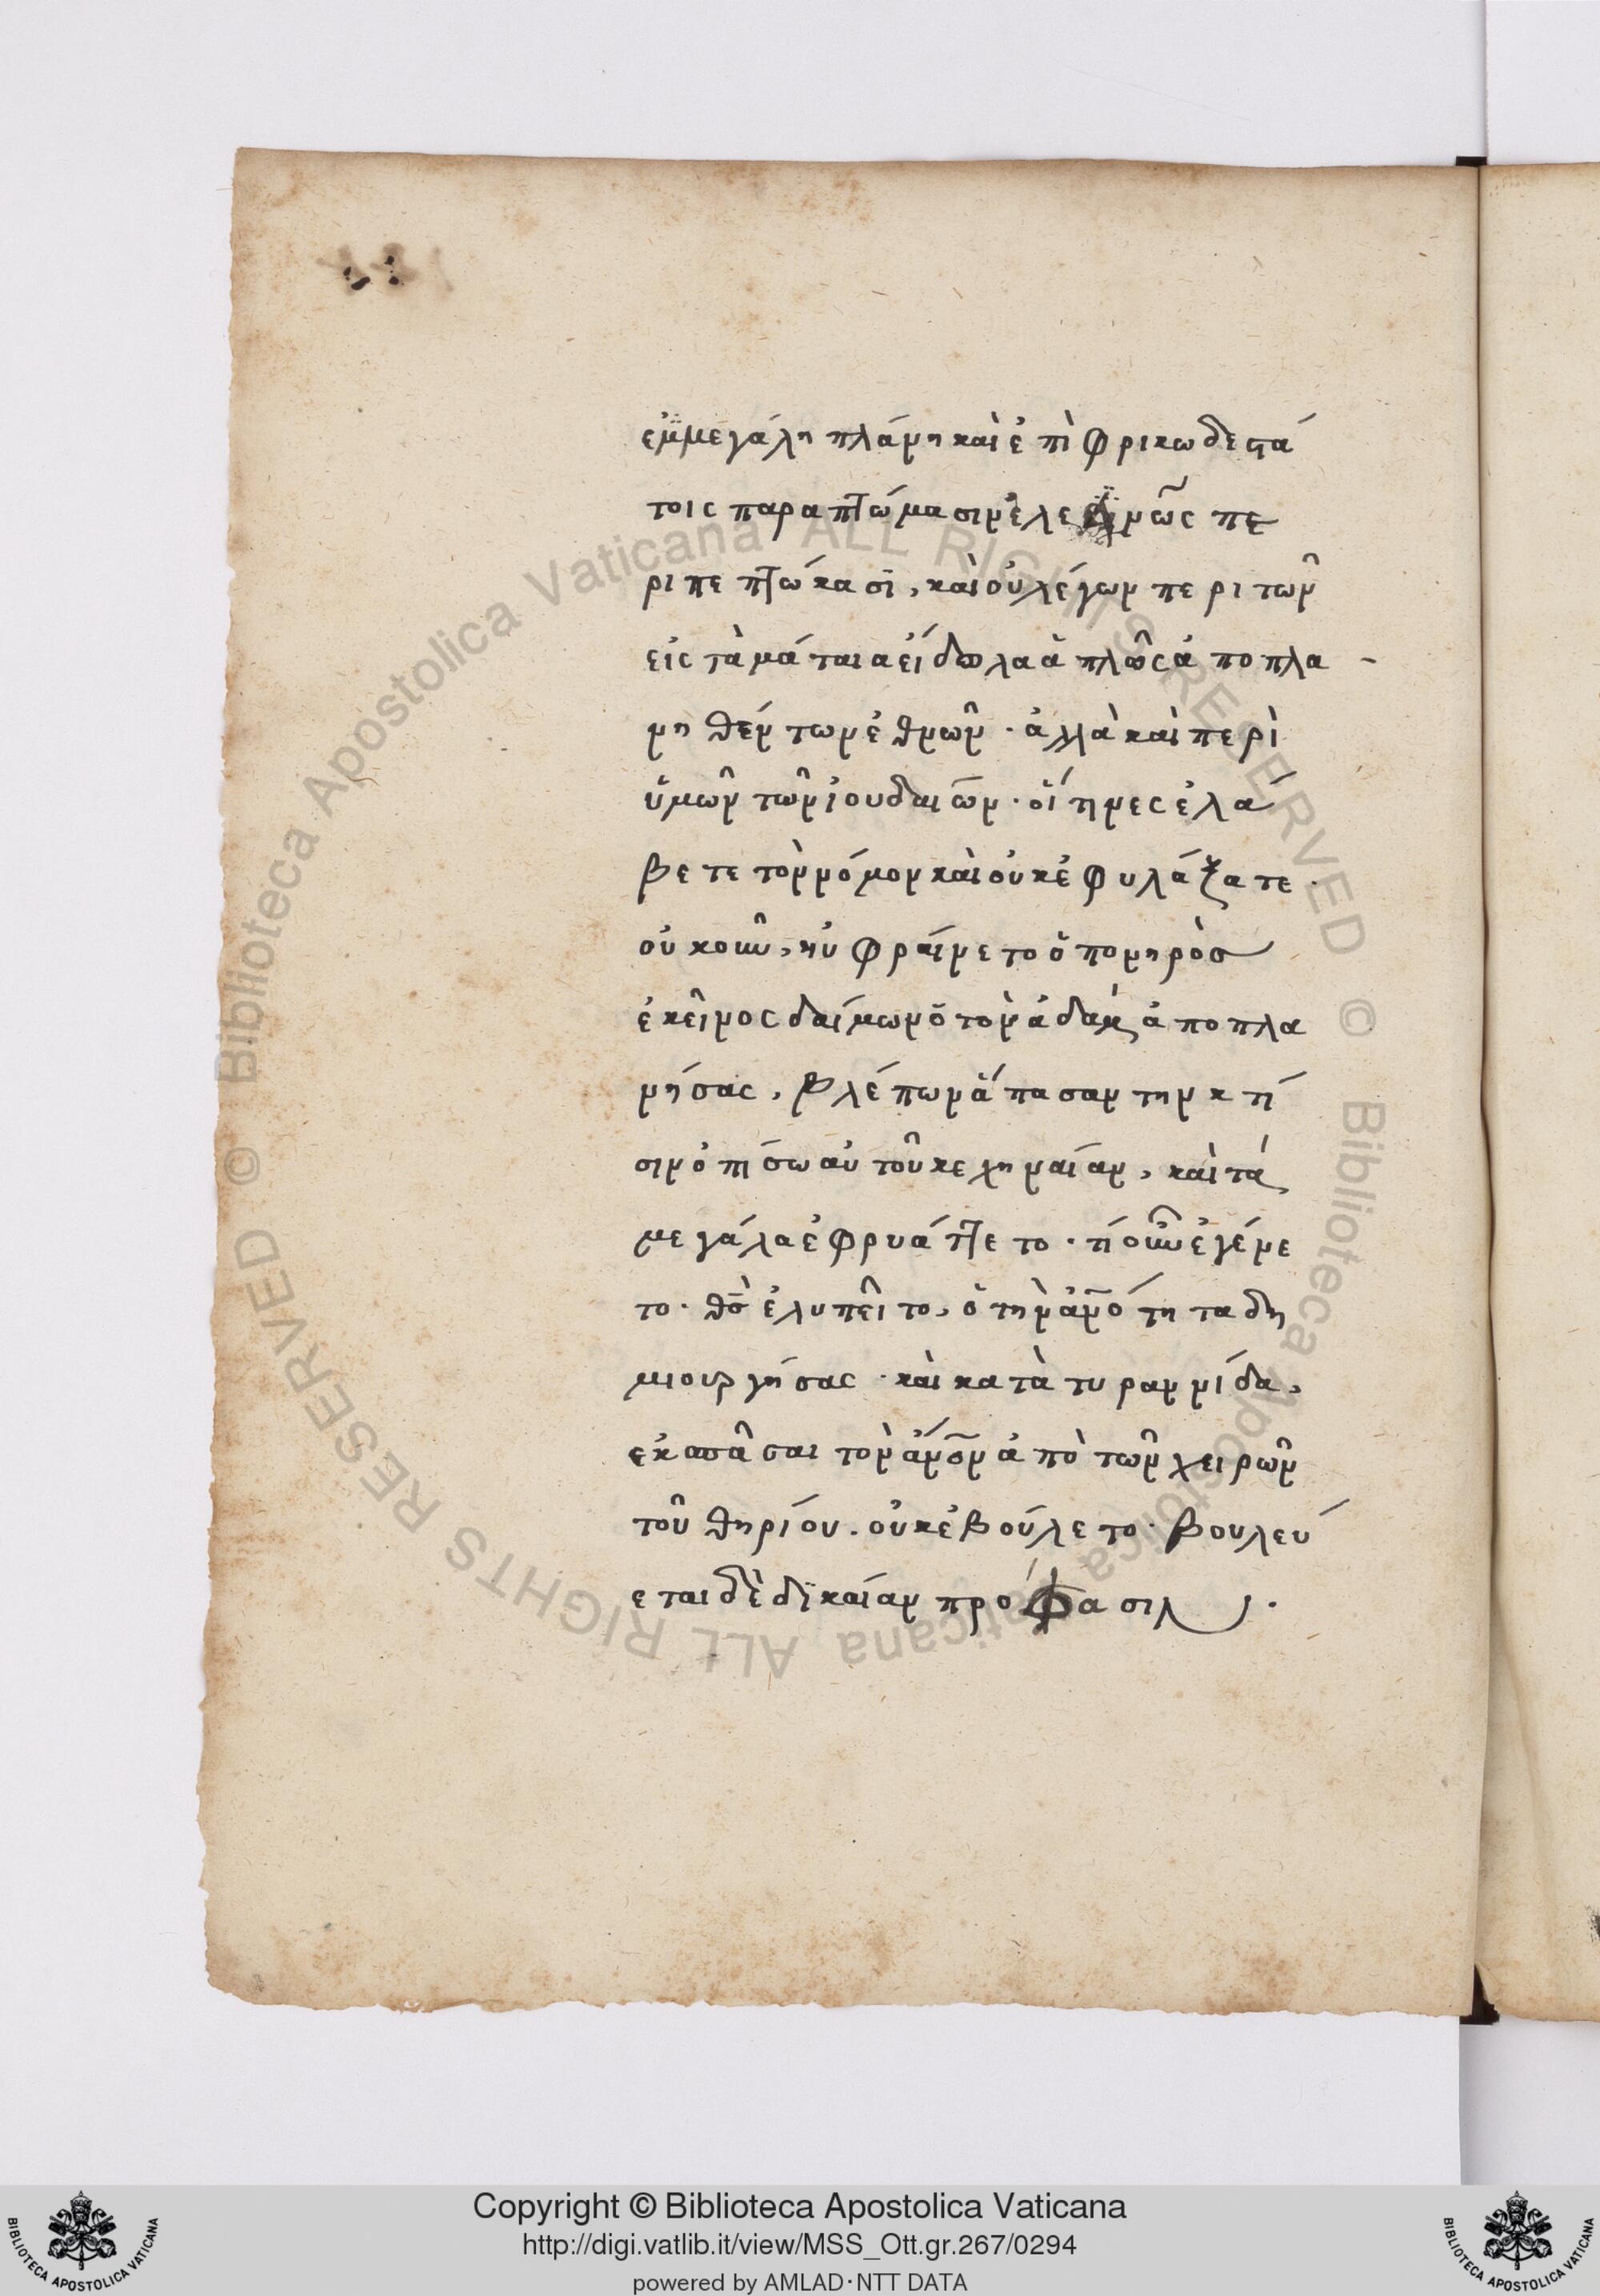 ἐμμεγάλη πλάνη καὶ ἐπὶ φρικωδεστά
τοις παραπτώμασιν ἐλεεινῶς πε
ριπεπτώκασι, καὶ οὐ λέγων περι τῶν
εἰς τὰ μάταια εἴδωλα ἁπλῶς ἀποπλα-
νηθέντων ἐθνῶν · ἀλλὰ καὶ περὶ
ὑμῶν τῶν ἰουδαιων · οἵτηνες ἐλά
βετε τὸν νόμον καὶ οὐκ ἐφυλάξατε ·
οὐκοῦν, ηὐφραίνετο ὁ πονηρὸσ
ἐκεῖνος δαίμων ὁ τὸν ἀδὰμ ἀποπλα
νήσας, βλέπων ἅπασαν την κτί
σιν ὀπίσω αὐτοῦ κεχηναίαν, καὶ τὰ
μεγάλα ἐφρυάττετο · τί οὖν ἐγένε
το · θ̅ς̅ ἐλυπεῖτο, ὁ τὴν ἀν̅ό̅τητα δη
μιουργήσας · καὶ κατὰ τυραννίδα,
ἐκσπᾶσαι τὸν ἄν̅ο̅ν ἀπὸ τῶν χειρῶν
τοῦ θηρίου. οὐκ ἐβούλετο · βουλεύ
εται δὲ δικαίαν πρόφασιν ·
Biblioteca Apostolica Vaticana ALL RIGHTS RESERVED © Biblioteca Apostolica Vaticana ALL RIGHTS RESERVED ©
Copyright © Biblioteca Apostolica Vaticana
http://digi.vatlib.it/view/MSS_Ott.gr.267/0294
powered by AMLAD·NTT DATA
BIBLIOTECA APOSTOLICA VATICANA
BIBLIOTECA APOSTOLICA VATICANA